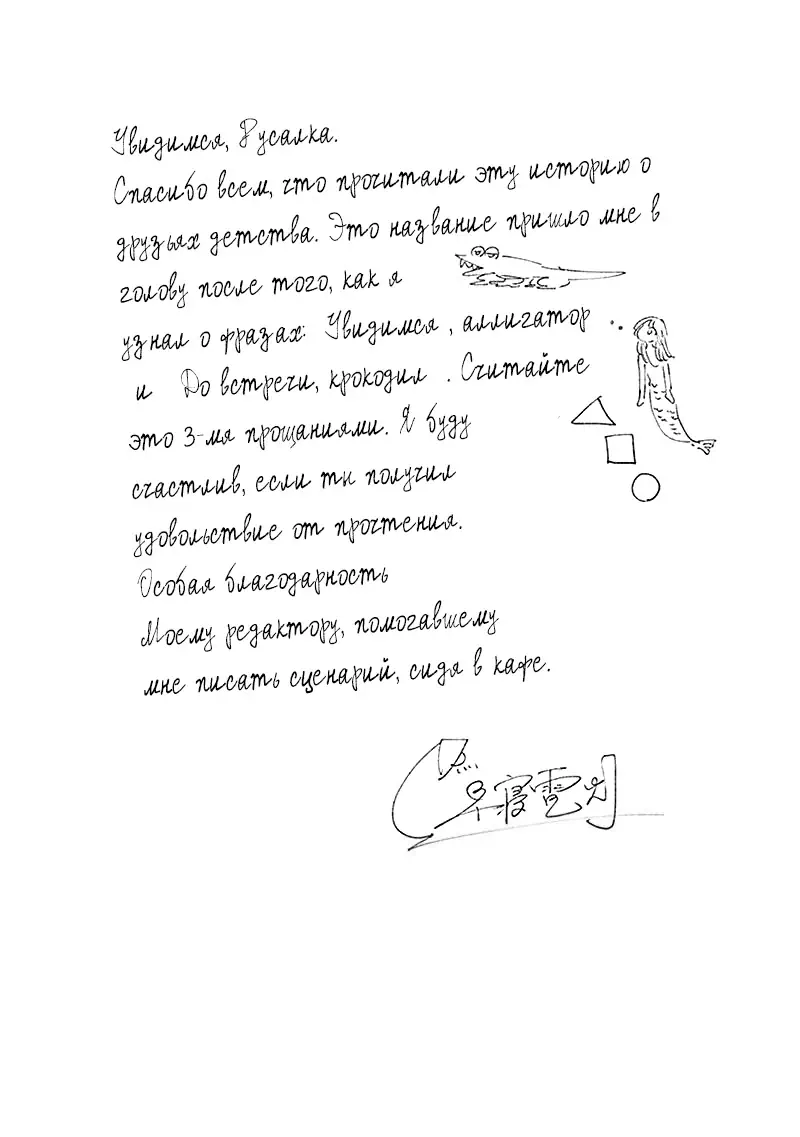 Увидимся, Русалка.
Спасибо всем, что прочитали эту историю о
друзьях детства. Это название пришло мне в
голову после того, как я
узнал о фразах: Увидимся, аллигатор
и До встречи, крокодил. Считайте
это 3-мя прощаниями. Я буду
счастлив, если ты получил
удовольствие от прочтения.
Особая благодарность
Моему редактору, помогавшему
мне писать сценарий, сидя в кафе.
寝電灯